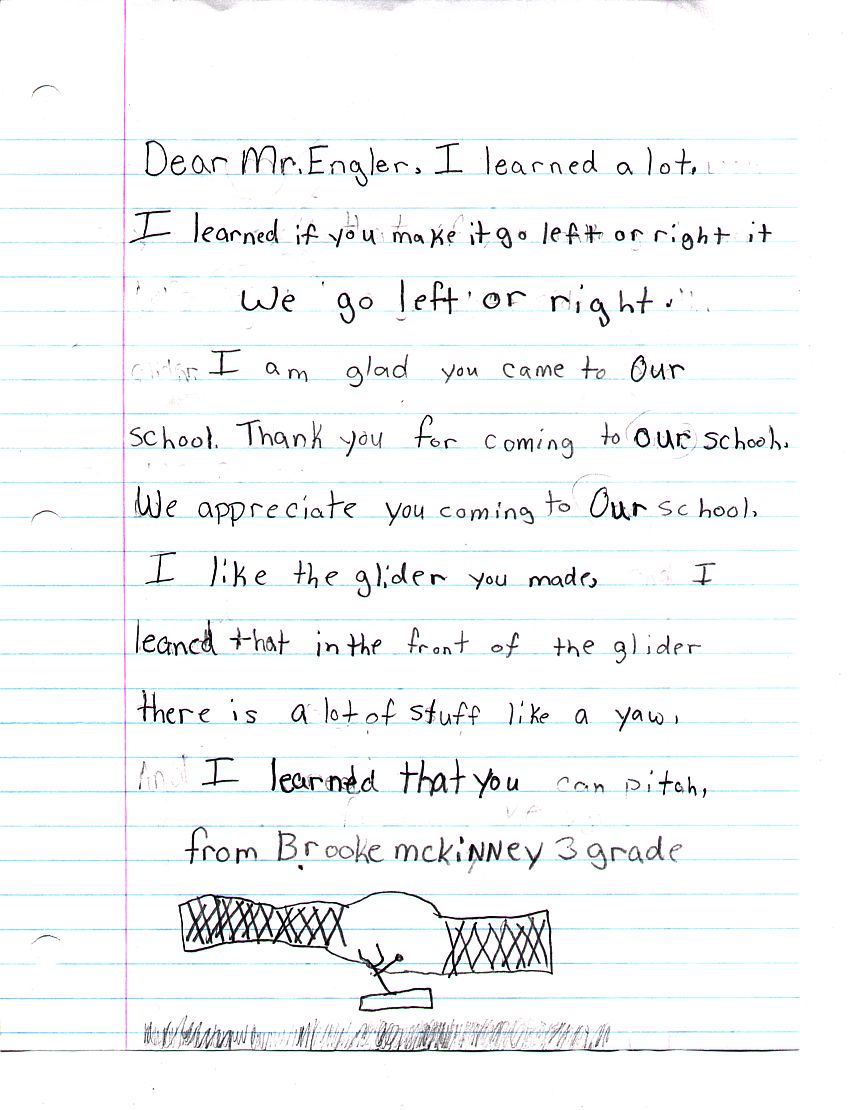 Dear Mr. Engler, I learned a lot.
I learned if you make it go left or right it
We go left or right.
I am glad you came to Our
school. Thank you for coming to our school.
We appreciate you coming to Our school.
I like the glider you made, I
leancd that in the front of the glider
there is a lot of stuff like a yaw,
And I learned that you can pitch,
from Brooke mckinney 3 grade